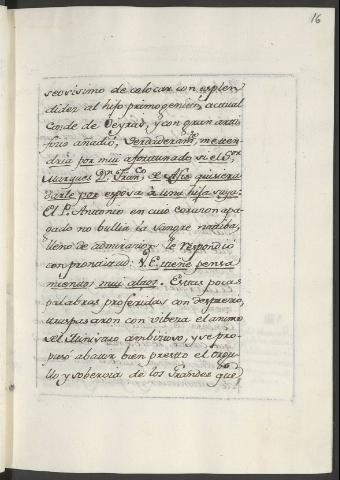 16
seosisimo de colocar con esplen
didez al hijo primogenito, actual
Conde de Oeyras, y con gran arti
ficio añadió, Verdaderamte. me ten
dria por mui afortunado si el Sor.
Marques Dn. Franco. de Asis quisiera
darle por esposa à una hija suya:
El P. Antonio en cuio corazon apa
gado no bullia la sangre
lleno de admiracion le respondió
con prontitud: V. E. tiene pensa
mientos mui altos. Estas pocas
palabras proferidas con desprecio,
traspasaron con viveza el animo
del Ministro ambizioso, y se pro
puso abatir bien presto el orgu
llo y soberbia de los Grandes que